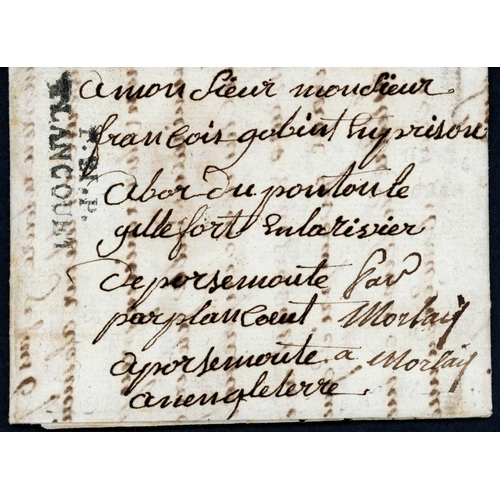 a monsieur monsieur
francois gobint en prison
a bor du pontont le
gille fort en la rivier
de porsemoute par
par plancoeut morlaix
a porsemoute a morlaix
an engleterre.
PLANCOUET